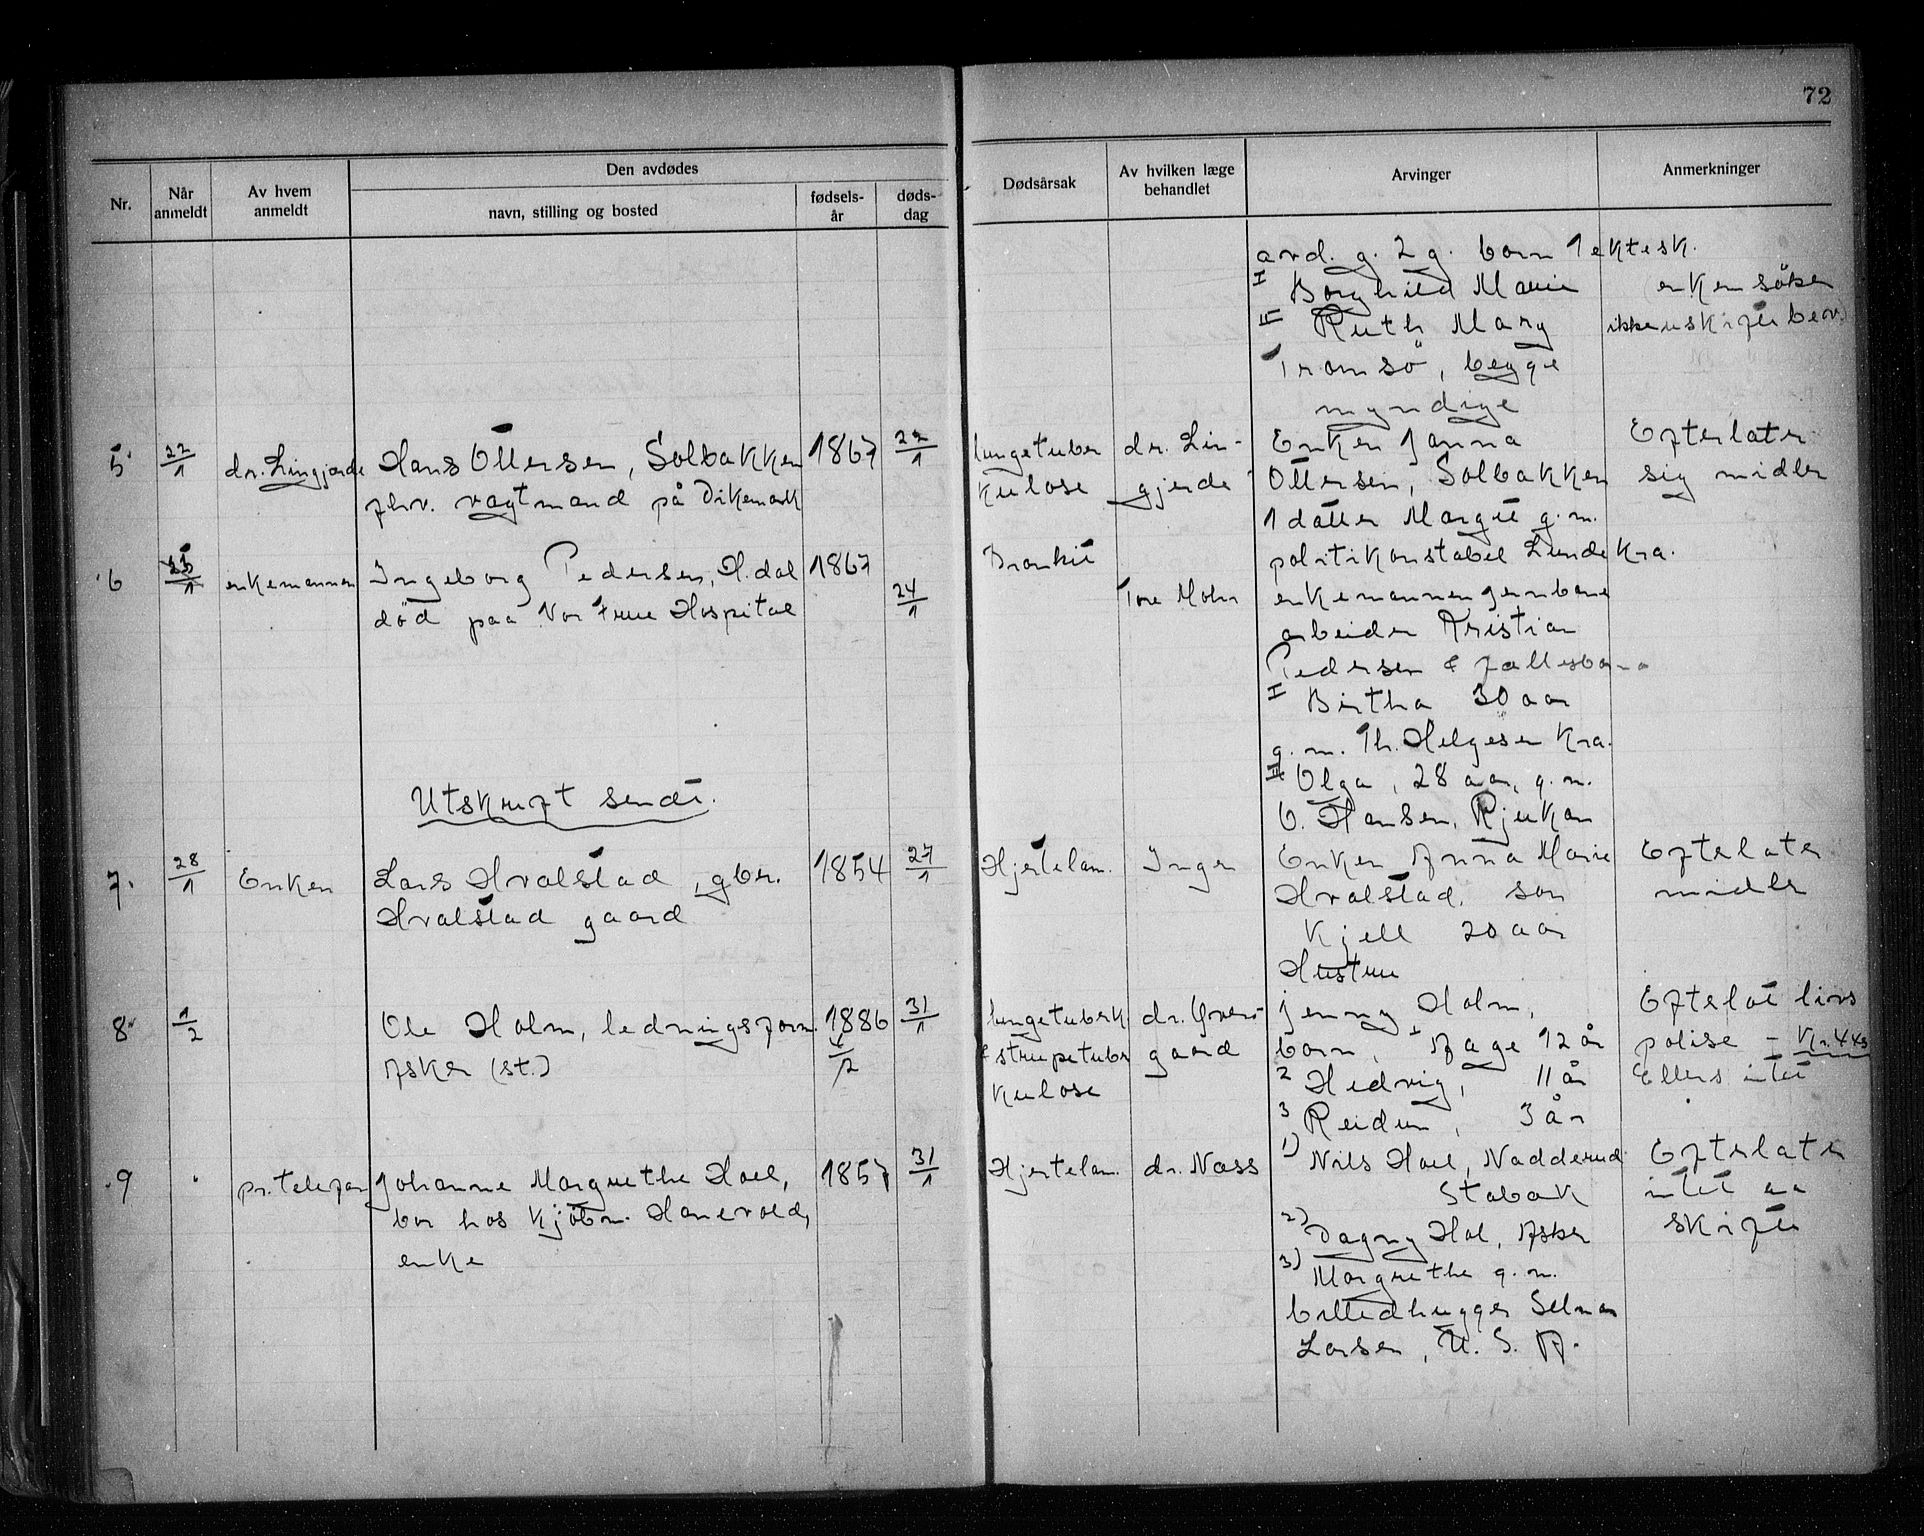 72
Nr.
Når anmeldt
Av hvem anmeldt
Den avdødes
navn, stilling og bosted
fødsels-år
døds-dag
Dødsårsak
Av hvilken læge behandlet
Arvinger
Anmerkninger
avd. g. 2 g. barn 1 ektesk.
I Borghild Marie
II Ruth Mary
Tromsö, begge
myndige
enken söker
ikke uskifte bev.
5 22/1 dr. Lingjærde Hans Ottersen, Solbakken 1867 22/1
fhv. vagtmand på Dikemark
lungetuber
kulose
dr. Lin-
gjerde
Enken Janna
Ottersen, Solbakken
1 datter Margit g. m.
politikonstabel Lunde Kra.
Efterlater
sig midler
6 25/1 enkemannen Ingeborg Pedersen, H.dal 1867 24/1
død paa Vor Frue Hospital
Bronkit
Tore Mohr
enkemannen jernbane
arbeider Kristian
Pedersen & fællesbarn
I Birtha 30 aar
g. m. Th. Helgesen Kra.
II Olga, 28 aar, g. m.
O. Hansen, Rjukan
Utskrift sendt.
7. 28/1 Enken Lars Hvalstad, gbr. 1854 27/1
Hvalstad gaard
Hjertelam.
Inger
Enken Anna Marie
Hvalstad, søn
Kjell 20 aar
Efterlater
midler
8 1/2 Ole Holm, ledningsform. 1886 31/1
Asker (st.)
lungetuberk.
& strupetuber
kulose
dr. Øvers-
gaard
Hustru
Jenny Holm,
barn, 1 Aage 12 år
2 Hedvig, 11 år
3 Reidun, 3 år
Efterlot livs
polise - Kr. 443
Ellers intet
9 pr. telefon Johanne Margrethe Hoel, 1857 31/1
bor hos kjøbm. Hanevold,
enke
Hjertelam.
dr. Næss
1) Nils Hoel, Nadderud
Stabæk
2) Dagny Hoel, Asker
3) Margrethe g. m.
billedhugger Selmer
Larsen, U. S. A.
Efterlater
intet aa
skifte